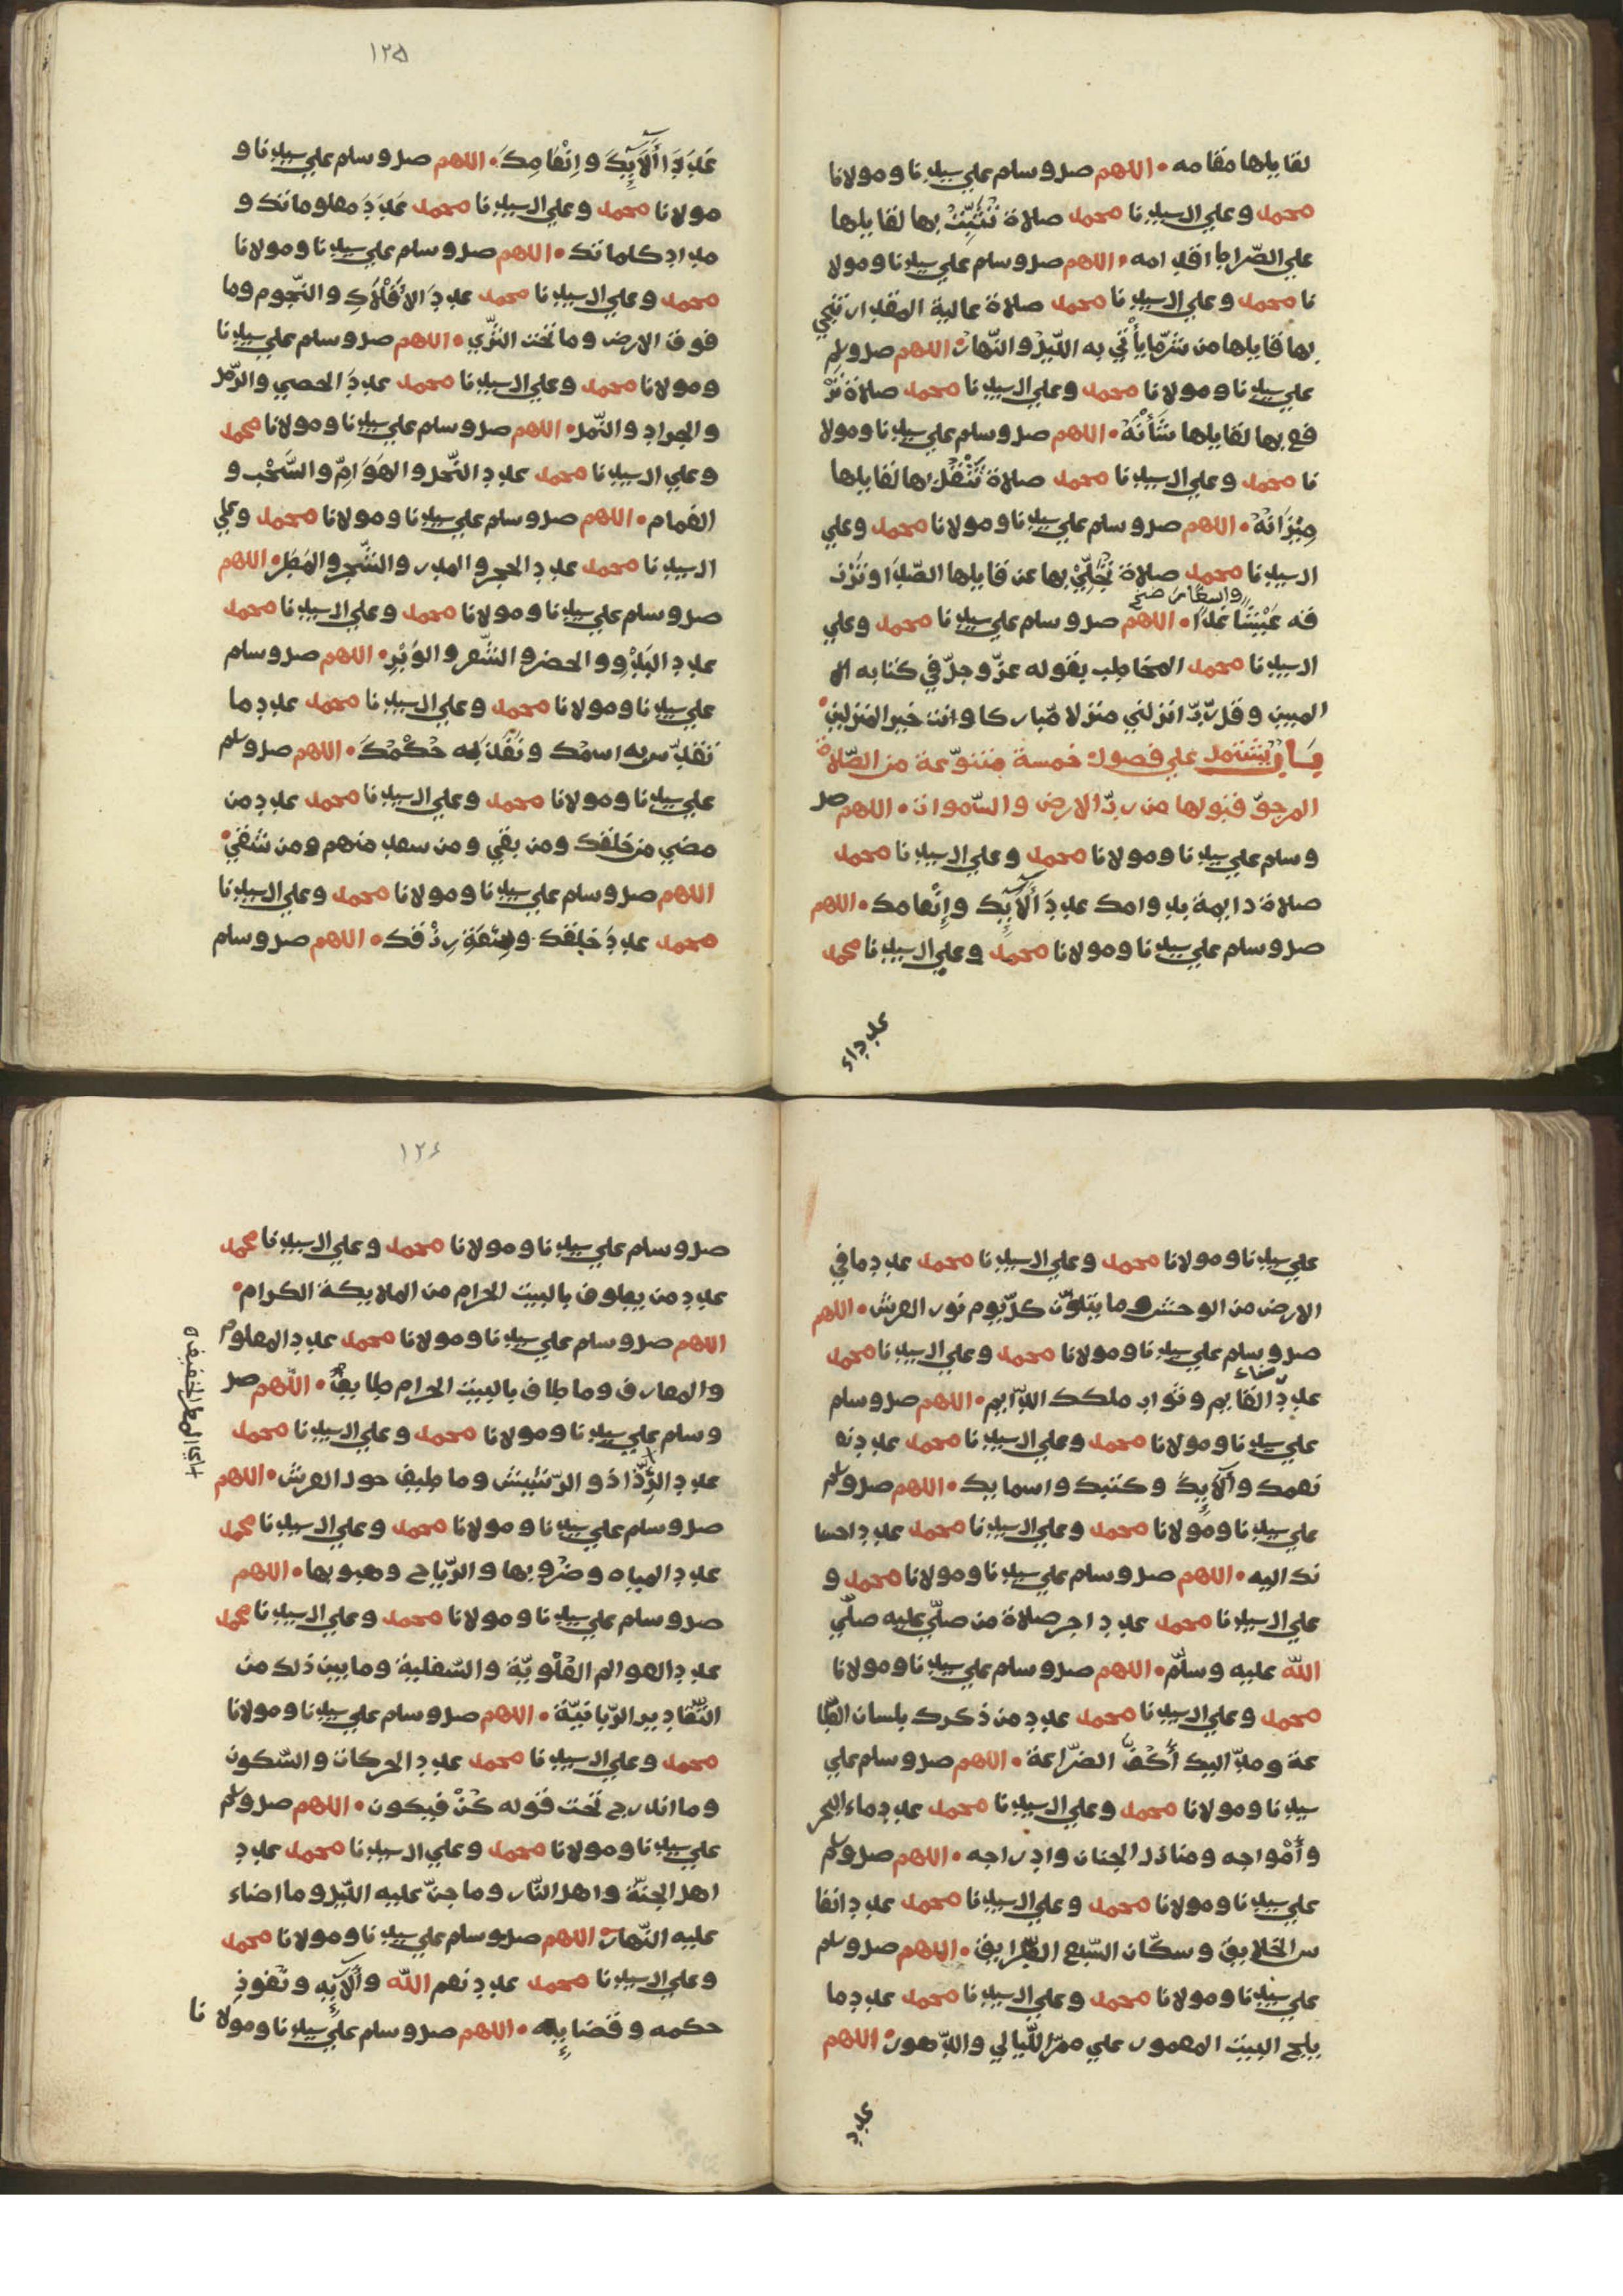 لقايلها مقامه. اللهم صل وسلم علي سيدنا ومولانا
محمد وعلي ال سيدنا محمد صلاة تُثَبِّتْ بها لقايلها
علي الصّراط اقدامه. اللهم صل وسلم علي سيدنا ومولا
نا محمد وعلي ال سيدنا محمد صلاة عالية المقدار تنجي
بها قايلها من شرّ ما يأتي به اللّيل والنّهار. اللهم صل وسلم
علي سيدنا ومولانا محمد وعلي ال سيدنا محمد صلاة تر
فع بها لقايلها شَأْنَهْ. اللهم صل وسلم علي سيدنا ومولا
نا محمد وعلي ال سيدنا محمد صلاة تُثْقِلْ بها لقايلها
مِيْزَانَهْ. اللهم صل وسلم علي سيدنا ومولانا محمد وعلي
ال سيدنا محمد صلاة تُجَلِّيْ بها عن قايلها الصّدَا وتَرْز
واسعًا صح
قه عَيْشًا غَدًا. اللهم صل وسلم علي سيدنا محمد وعلي
ال سيدنا محمد المخاطب بقوله عزّ وجلّ في كتابه ال
المبين وقل ربّ انزلني منزلا مّباركا وانت خير المنزلين.
بَابٌ يشْتمل علي فصول خمسة متنوّعة من الصّلاة
المرجوّ قبولها من ربّ الارض والسّموات. اللهم صل
وسلم علي سيدنا ومولانا محمد وعلي ال سيدنا محمد
صلاة دايمة بدوامك عددَ أَلَآيِكَ وإِنْعامك. اللهم
صل وسلم علي سيدنا ومولانا محمد وعلي ال سيدنا محمد
عدد اء
١٢٥
عَدَدَ أَلَآيِكَ وإِنْعَامِكَ. اللهم صل وسلم علي سيدنا و
مولانا محمد وعلي ال سيدنا محمد عَدَدَ معلوماتك و
مداد كلماتك. اللهم صل وسلم علي سيدنا ومولانا
محمد وعلي ال سيدنا محمد عددَ الأَفْلَاكِ والنّجوم وما
فوق الارض وما تحت الثرّي. اللهم صل وسلم علي سيدنا
ومولانا محمد وعلي ال سيدنا محمد عددَ الحصي والرّمل
والجراد والنّمل. اللهم صل وسلم علي سيدنا ومولانا محمد
وعلي ال سيدنا محمد عدد النّحل والهَوَامِّ والسَّحْب و
الغمام. اللهم صل وسلم علي سيدنا ومولانا محمد وعلي
ال سيدنا محمد عدد الحجر والمدر والشّجر والمَطَر. اللهم
صل وسلم علي سيدنا ومولانا محمد وعلي ال سيدنا محمد
عدد البَدْوِ والحضر والشّعر والوَبْرِ. اللهم صل وسلم
علي سيدنا ومولانا محمد وعلي ال سيدنا محمد عدد ما
تقدّس به اسمُك ونَفَذَ به حُكْمُكَ. اللهم صل وسلم
علي سيدنا ومولانا محمد وعلي ال سيدنا محمد عدد من
مضي من خلقك ومن بقي ومن سعد منهم ومن شقي.
اللهم صل وسلم علي سيدنا ومولانا محمد وعلي ال سيدنا
محمد عددَ خلقك وسَعَةِ رزقك. اللهم صل وسلم
علي سيدنا ومولانا محمد وعلي ال سيدنا محمد عدد ما في
الارض من الوحش وما يتلوّن كلّ يوم نور العرش. اللهم
صل وسلم علي سيدنا ومولانا محمد وعلي ال سيدنا محمد
عدد القايم وثواب ملكك الدّايم. اللهم صل وسلم
علي سيدنا ومولانا محمد وعلي ال سيدنا محمد عدد نع
نعمك وألَآيِكَ وكتبك واسمايك. اللهم صل وسلم
علي سيدنا ومولانا محمد وعلي ال سيدنا محمد عدد احسا
نك اليه. اللهم صل وسلم علي سيدنا ومولانا محمد و
علي ال سيدنا محمد عدد اجر صلاة من صلّي عليه صلّي
الله عليه وسلّم. اللهم صل وسلم علي سيدنا ومولانا
محمد وعلي ال سيدنا محمد عدد من ذكرك بلسان الطّا
عة ومدّ اليك أَكُفَّ الضّراعة. اللهم صل وسلم علي
سيدنا ومولانا محمد وعلي ال سيدنا محمد عدد ماء البحر
وأَمْواجه ومنازل الجنان وادراجه. اللهم صل وسلم
علي سيدنا ومولانا محمد وعلي ال سيدنا محمد عدد انفا
س الخلايق وسكّان السّبع الطّرايق. اللهم صل وسلم
علي سيدنا ومولانا محمد وعلي ال سيدنا محمد عدد ما
يلج البيت المعمور علي ممرّ اللّيالي والدّهور. اللهم
عدد
١٢٦
صل وسلم علي سيدنا ومولانا محمد وعلي ال سيدنا محمد
عدد من يطوف بالبيت الحرام من الملايكة الكرام.
اللهم صل وسلم علي سيدنا ومولانا محمد عدد المعلوم
والمعارف وما طاف بالبيت الحرام طايفٌ. اللّهم صل
وسلم علي سيدنا ومولانا محمد وعلي ال سيدنا محمد
عدد الرَّذّاذ والرّشيش وما طيف حول العرش. اللهم
اي المطر الخفيف
صل وسلم علي سيدنا ومولانا محمد وعلي ال سيدنا محمد
عدد المياه وضُروبها والرّياح وهبوبها. اللهم
صل وسلم علي سيدنا ومولانا محمد وعلي ال سيدنا محمد
عدد العوالم العُلْويّة والسّفلية وما بين ذلك من
التّقادير الرّبانيّة. اللهم صل وسلم علي سيدنا ومولانا
محمد وعلي ال سيدنا محمد عدد الحركات والسّكون
وما اندرج تحت قوله كُنْ فيكون. اللهم صل وسلم
علي سيدنا ومولانا محمد وعلي ال سيدنا محمد عدد
اهل الجنّة واهل النّار وما جنّ عليه اللّيل وما اضاء
عليه النّهار. اللهم صل وسلم علي سيدنا ومولانا محمد
وعلي ال سيدنا محمد عدد نعم الله وألَآيِهِ ونُفوذِ
حكمه وقضايِه. اللهم صل وسلم علي سيدنا ومولانا